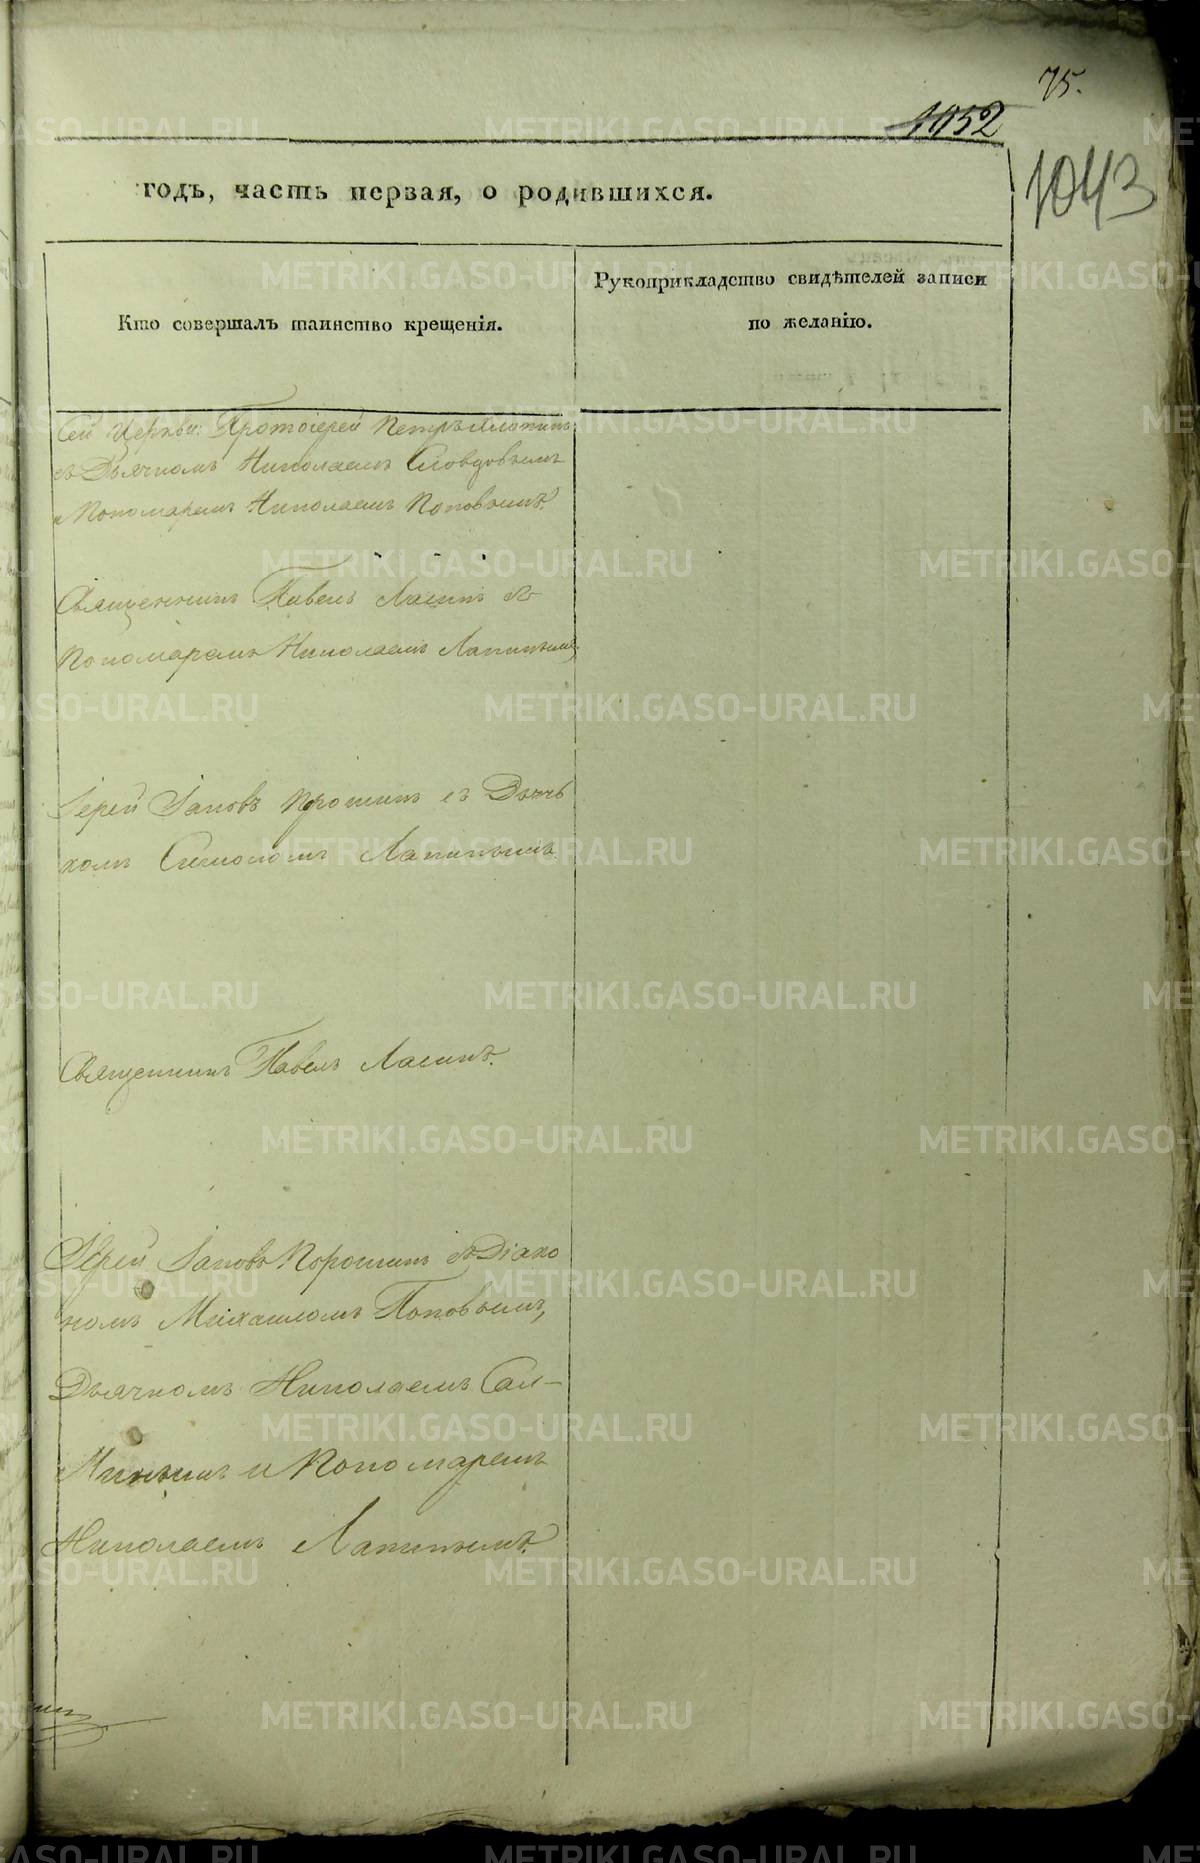 75.
1052
1043
годъ, часть первая, о родившихся.
Кто совершалъ таинство крещенія.
Рукоприкладство свидѣтелей записи
по желанію.
Сей Церкви: Протоіерей Петръ
съ Дьячкомъ Николаемъ Словцовымъ
и Пономаремъ Николаемъ Поповымъ.
Священникъ Павелъ Ласинъ съ
Пономаремъ Николаемъ Лапинымъ,
Іерей Іаковъ Порошинъ съ Дьяч
комъ Лапинымъ
Священникъ Павелъ Ласинъ.
Іерей Іаковъ Порошинъ съ Діако
номъ Михаиломъ Поповымъ,
Дьячкомъ Николаемъ Сал-
миныимъ и Пономаремъ
Николаемъ Лапинымъ.
METRIKI.GASO-URAL.RU